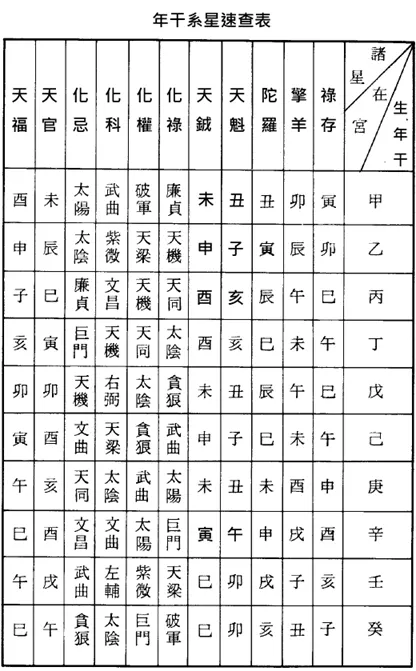 年干系星速查表
諸星在宮 生年干 祿存 擎羊 陀羅 天魁 天鉞 化祿 化權 化科 化忌 天官 天福
甲 寅 卯 丑 丑 未 廉貞 破軍 武曲 太陽 未 酉
乙 卯 辰 寅 子 申 天機 天梁 紫微 太陰 辰 申
丙 巳 午 辰 亥 酉 天同 天機 文昌 廉貞 巳 子
丁 午 未 巳 亥 酉 太陰 天同 天機 巨門 寅 亥
戊 巳 午 辰 丑 未 貪狼 太陰 右弼 天機 卯 卯
己 午 未 巳 子 申 武曲 貪狼 天梁 文曲 酉 寅
庚 申 酉 未 丑 未 太陽 武曲 太陰 天同 亥 午
辛 酉 戌 申 午 寅 巨門 太陽 文曲 文昌 酉 巳
壬 亥 子 戌 卯 巳 天梁 紫微 左輔 武曲 戌 午
癸 子 丑 亥 卯 巳 破軍 巨門 太陰 貪狼 午 巳